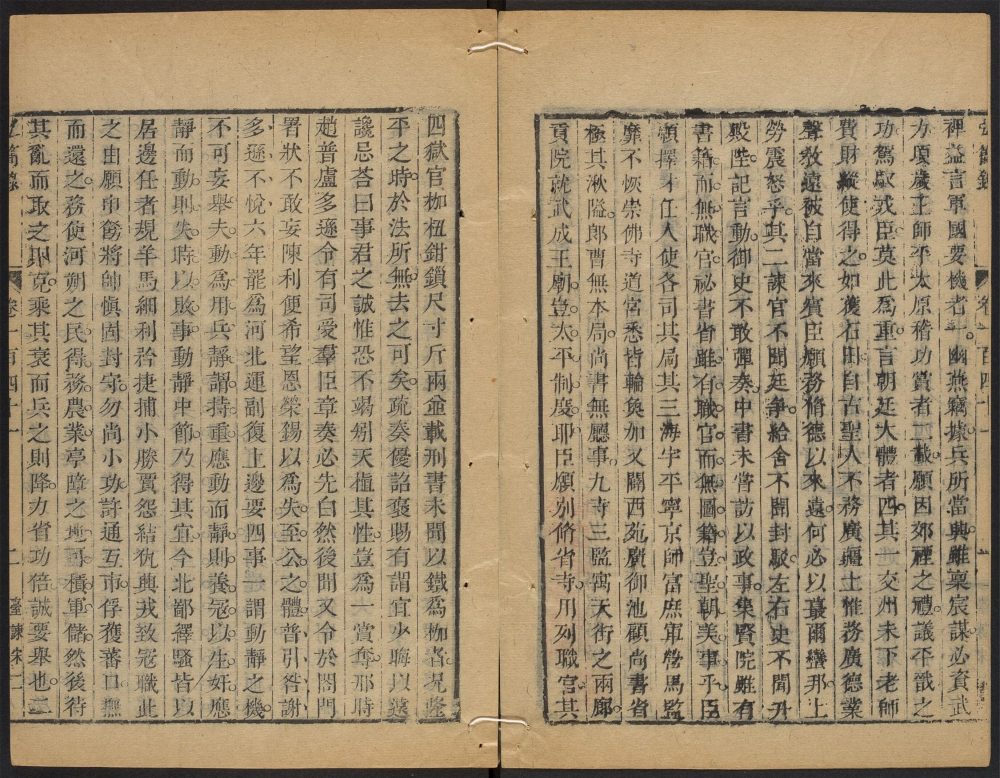 裨益言軍國要機者一幽燕竊據兵所當興雖稟宸謀必資武
力頃歲王師平太原稽功賞者二載願因郊禋之禮議平戩之
功駕馭戎臣莫此為重言朝廷大體者四其一交州未下老師
費財縱使得之如獲石田自古聖人不務廣疆土惟務廣德業
聲教遠被自當來賓臣願務脩德以來遠何必以蕞爾蠻那上
勞震怒乎其二諫官不聞廷諍給舍不聞封駁左右史不聞升
殿陛記言動御史不敢彈奏中書未嘗訪以政事集賢院雖有
書籍而無職官祕書省雖有職官而無圖籍豈聖朝美事乎臣
願擇才任人使各司其局其三海宇平寧京師富庶軍營馬監
靡不恢崇佛寺道宮悉皆輪奐加又闢西苑廣御池顧尚書省
極其湫隘郎曹無本局尚書無廳事九寺三監寓天街之兩廊
貢院就武成王廟豈太平制度耶臣願別脩省寺用列職官其
四獄官枷杻鉗鎖尺寸斤兩並載刑書未聞以鐵為枷者況隆
平之時於法所無去之可矣疏奏優詔褒賜有謂宜少晦以遠
讒忌荅曰事君之誠惟恐不竭矧天植其性豈為一賞奪邪時
趙普盧多遜令有司受羣臣章奏必先白然後聞又令於閤門
署狀不敢妄陳利便希望恩榮錫以為失至公之體普引咎謝
多遜不悅六年罷為河北運副復上邊要四事一謂動靜之機
不可妄舉夫動為用兵靜謂持重應動而靜則養寇以生奸應
靜而動則失時以敗事動靜中節乃得其宜今北鄙繹騷皆以
居邊任者規羊馬細利矜捷捕小勝賈怨結釁興戎致寇職此
之由願申飭將帥慎固封守勿尚小功許通互市俘獲蕃口無
而還之務使河朔之民得務農業亭障之地可積軍儲然後待
其亂而取之則克乘其衰而兵之則降力省功倍誠要舉也二
弘簡錄 卷一百四十一 二 臺諫宋二